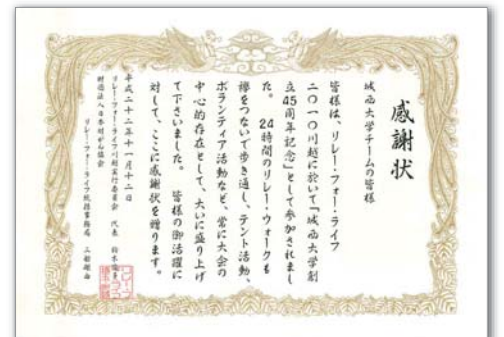 感謝状
城西大学チームの皆様
皆様は、リレー・フォー・ライフ
二〇一〇川越に於いて「城西大学創
立45周年記念」として参加されまし
た。 24時間のリレー・ウォークも
襷をつないで歩き通し、テント活動、
ボランティア活動など、常に大会の
中心的存在として、大いに盛り上げ
て下さいました。 皆様の御活躍に
対して、ここに感謝状を贈ります。
平成二十二年十一月十二日
リレー・フォー・ライフ川越実行委員会 代表 鈴木
財団法人日本対がん協会
リレー・フォー・ライフ統括事務局 三